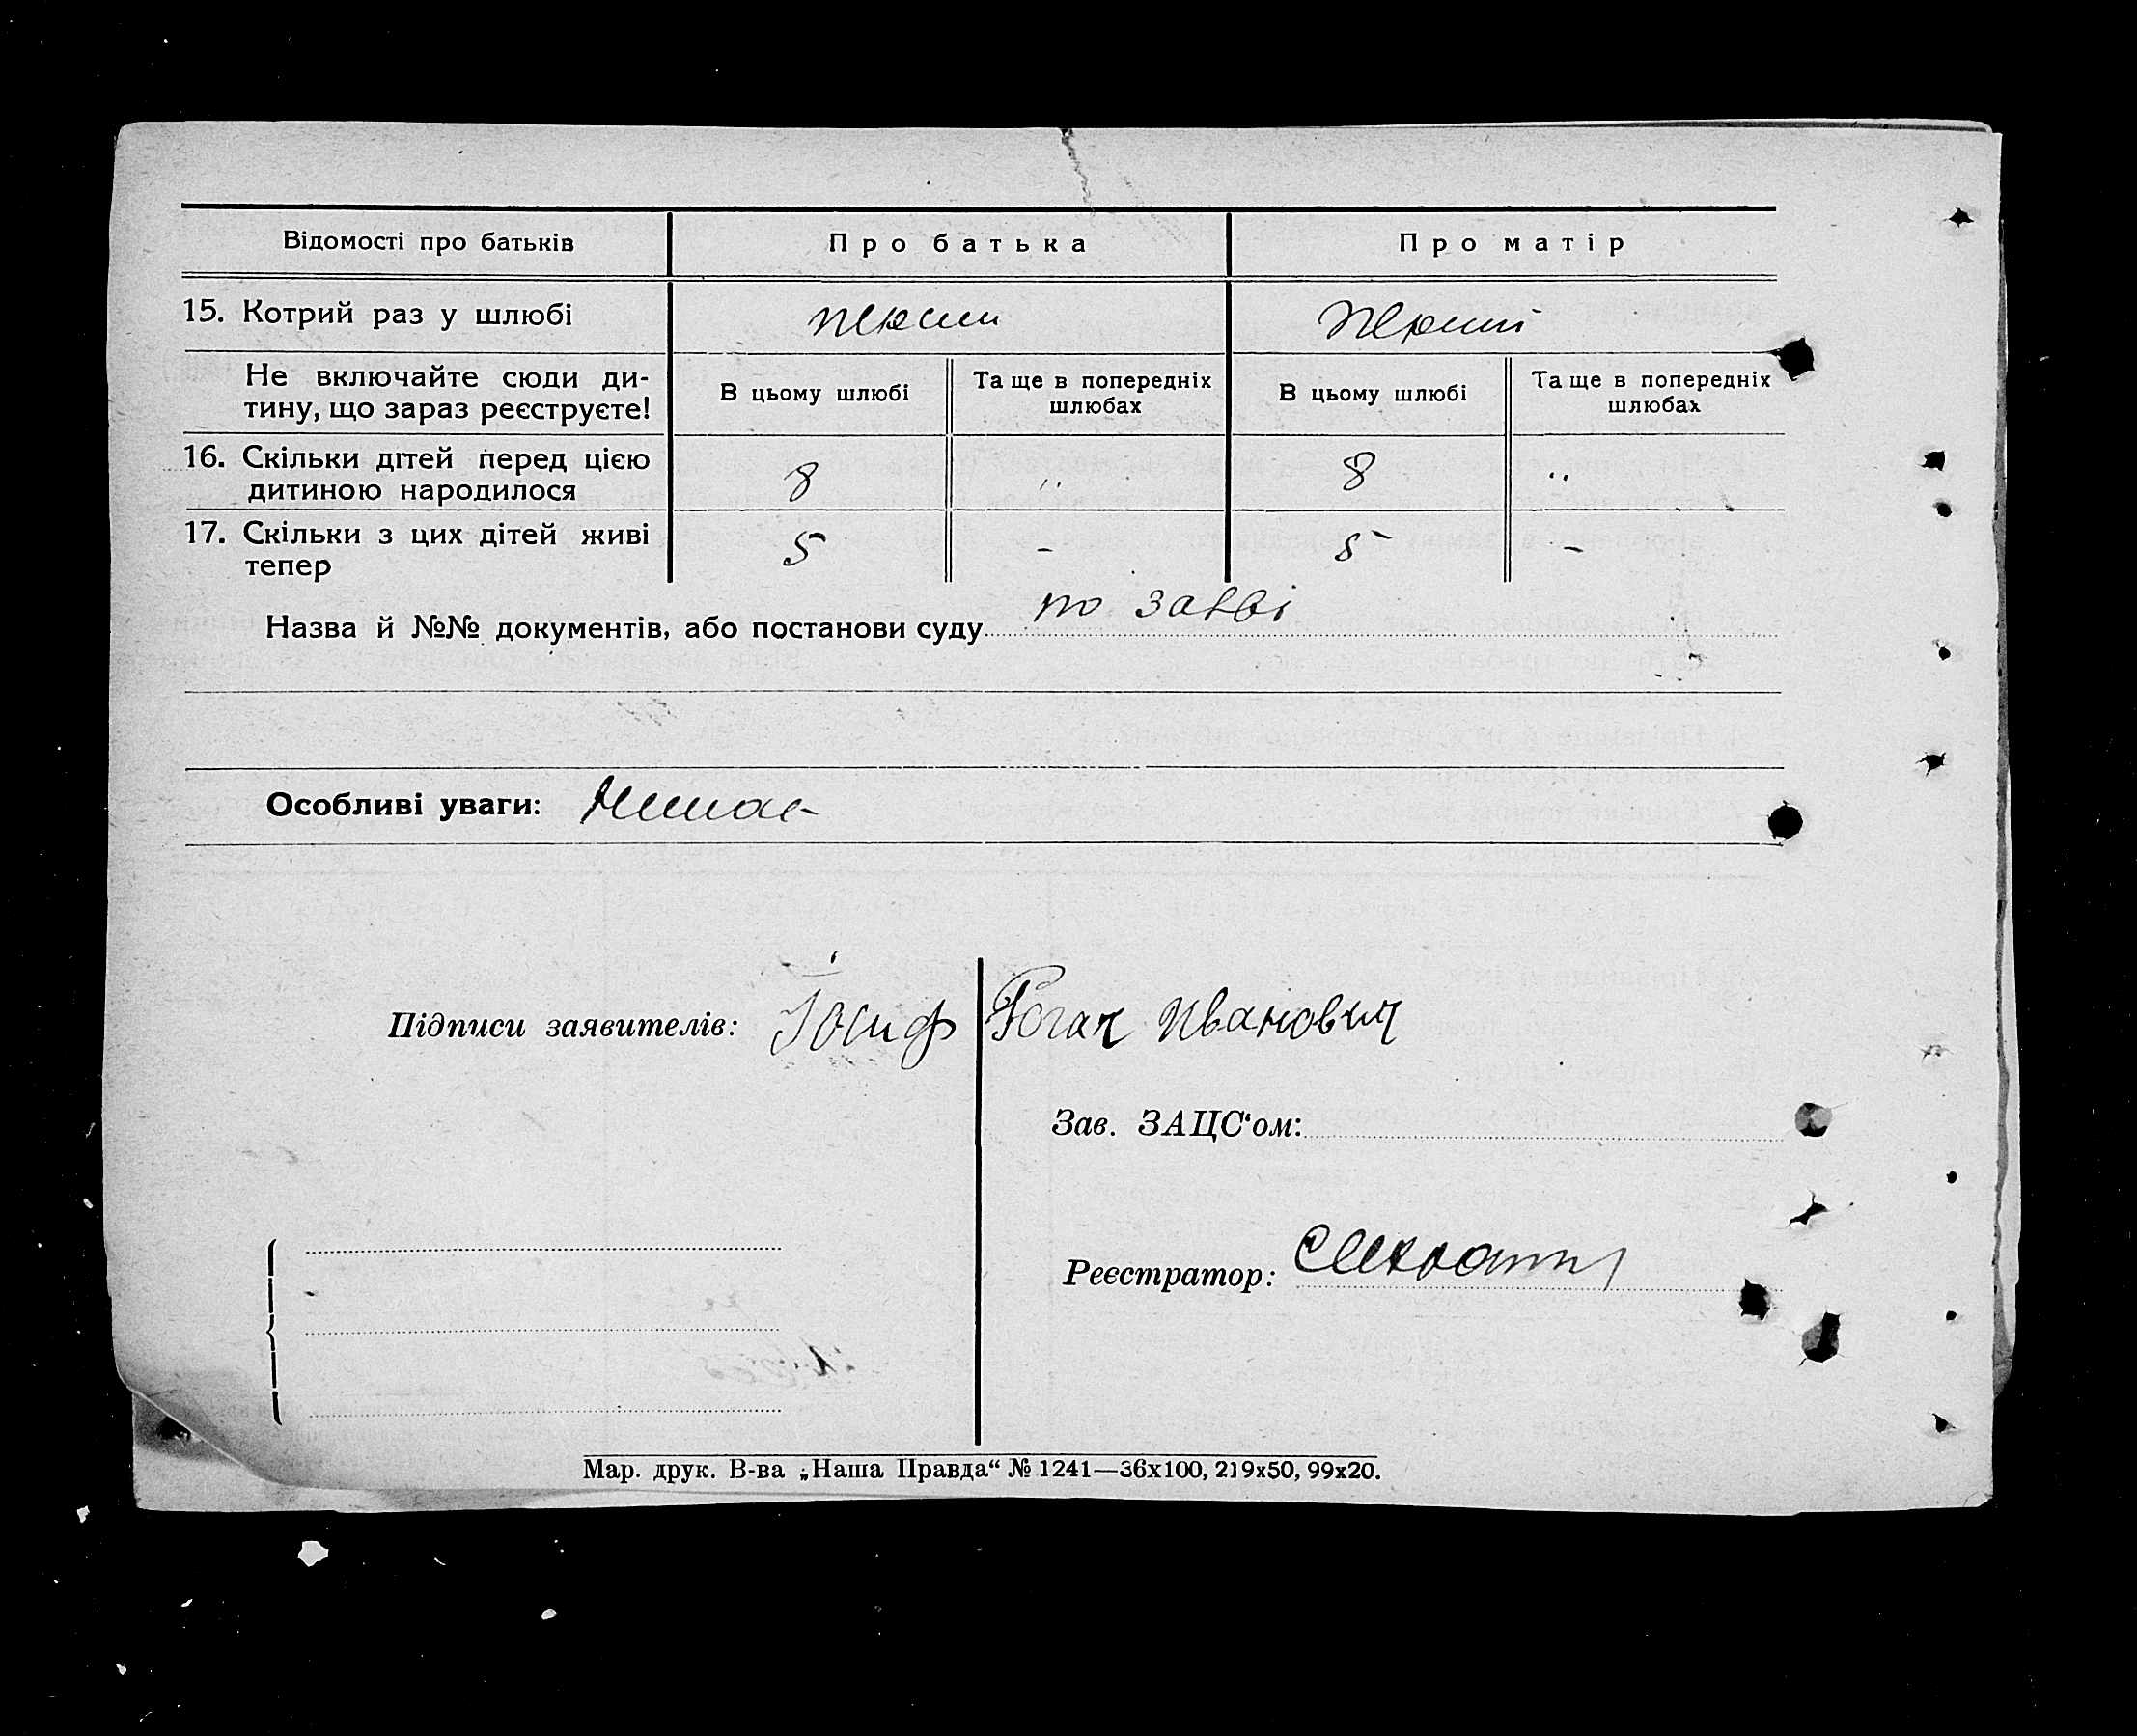 Відомості про батьків Про батька Про матір
15. Котрий раз у шлюбі перший перший
Не включайте сюди ди-
тину, що зараз реєструєте!
В цьому шлюбі
Та ще в попередніх
шлюбах
В цьому шлюбі
Та ще в попередніх
шлюбах
16. Скільки дітей перед цією
дитиною народилося
8 ,, 8 ,,
17. Скільки з цих дітей живі
тепер
5 - 5 -
Назва й №№ документів, або постанови суду по заяві
Особливі уваги: Немає
Підписи заявителів: Іосиф Рогач Иванович
Зав. ЗАЦС'ом:
Реєстратор:
Мар. друк. В-ва „Наша Правда“ № 1241—36х100, 219х50, 99х20.